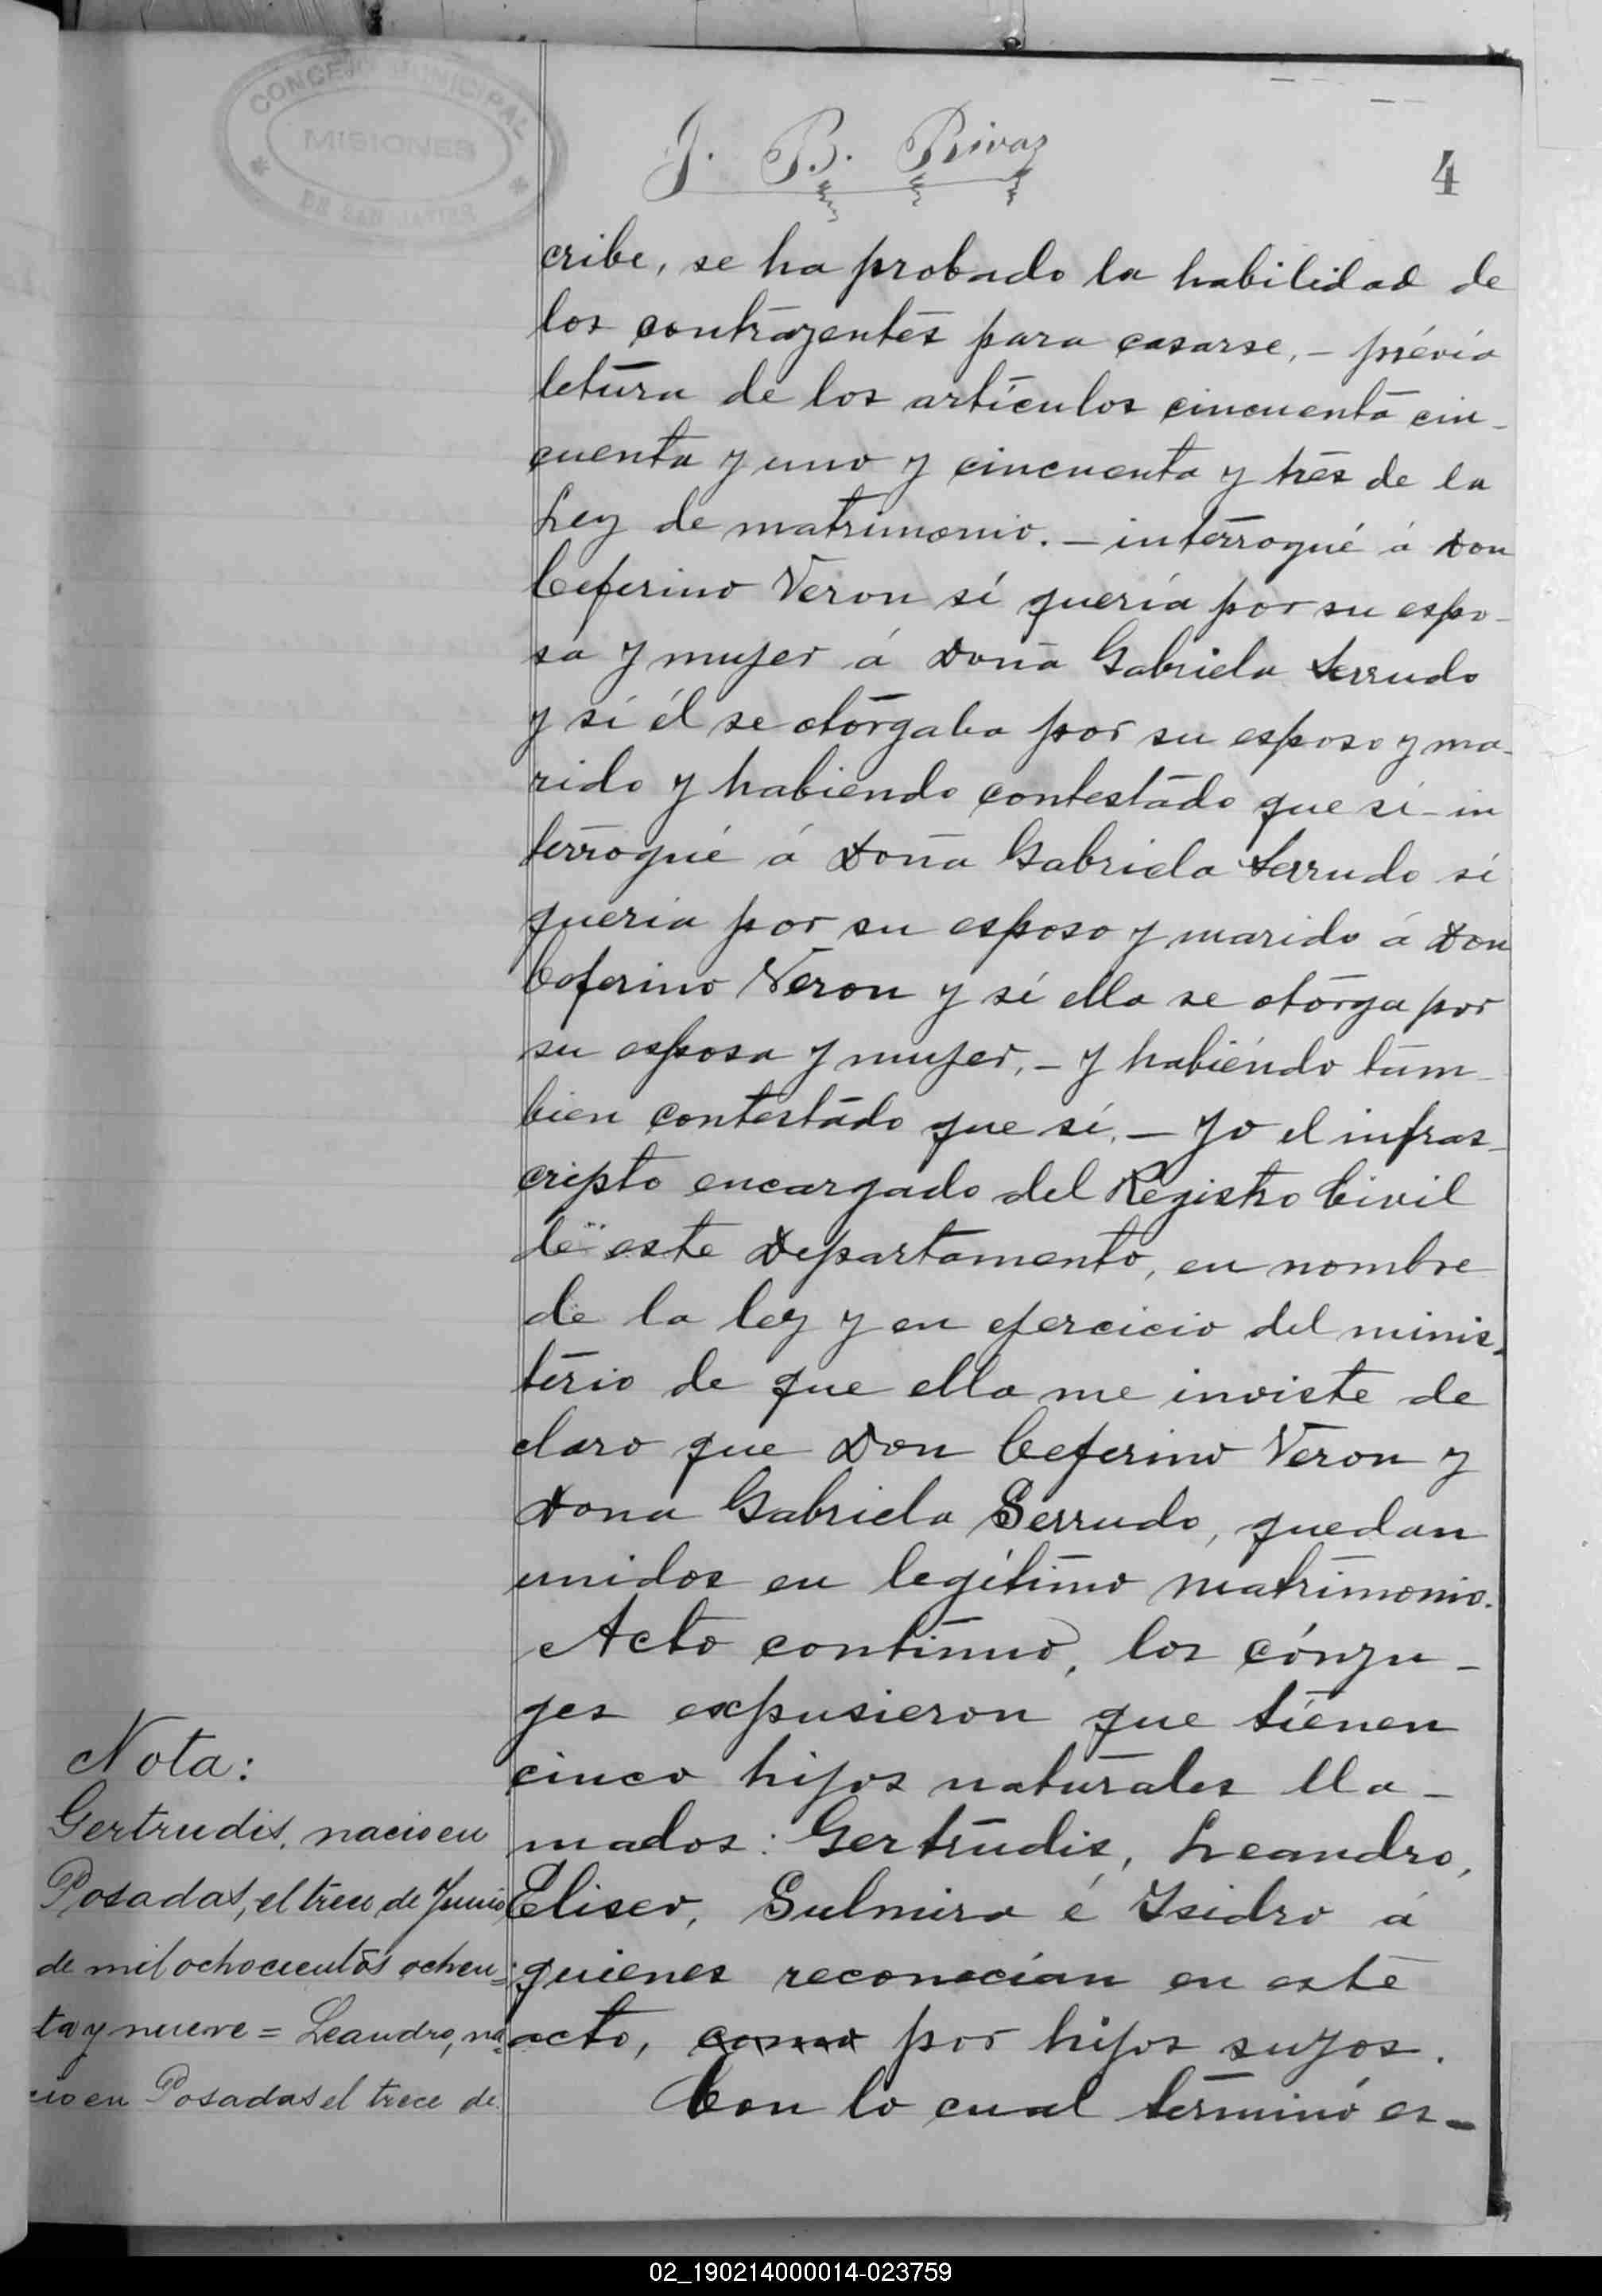 CONCEJO MUNICIPAL
MISIONES
DE SAN JAVIER
J. B. Rivas
4
cribe, se ha probado la habilidad de
los contrayentes para casarse, - prévia
letura de los artículos cincuenta cin-
cuenta y uno y cincuenta y tres de la
Ley de matrimonio. - interrogué á Don
Ceferino Veron sí quería por su espo-
sa y mujer á Doña Gabriela Serrudo
y sí él se otorgaba por su esposo y ma-
rido y habiendo contestado que sí - in
terrogué á Doña Gabriela Serrudo sí
queria por su esposo y marido á Don
Ceferino Veron y sí ella se otorga por
su esposa y mujer, - y habiéndo tam-
bien contestado que sí. - Yo el infras-
cripto encargado del Registro Civil
de este Departamento, en nombre
de la ley y en ejercicio del minis-
terio de que ella me inviste de
claro que Don Ceferino Veron y
Dona Gabriela Serrudo, quedan
unidos en legítimo matrimonio.
Acto continuo, los cónyu-
ges expusieron que tienen
cinco hijos naturales lla-
mados: Gertrudis, Leandro,
Eliseo, Sulmira é Ysidro á
quienes reconocían en este
acto, como por hijos suyos.
Con lo cual terminó es-
Nota:
Gertrudis, nacio en
Posadas, el trece de Junio
de mil ochocientos ochen=
ta y nueve = Leandro, na=
cio en Posadas el trece de
02_190214000014-023759